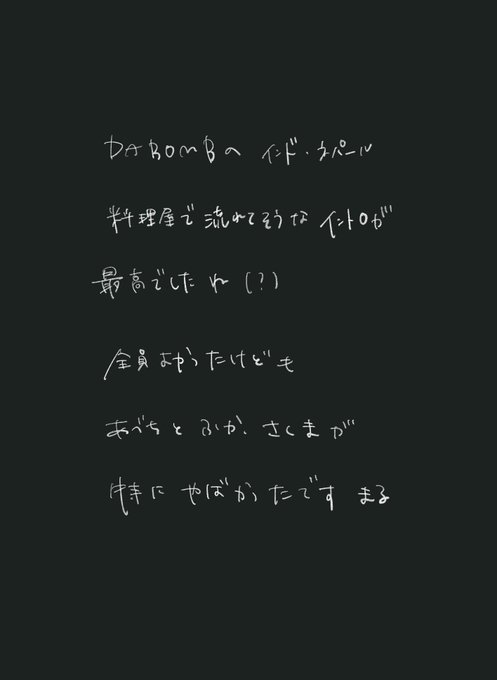 DA BOMBの インド・ネパール
料理屋で流れてそうな イントロが
最高でした ね (?)
全員よかったけども
あべちと ふか、さくまが
特に やばかったです まる